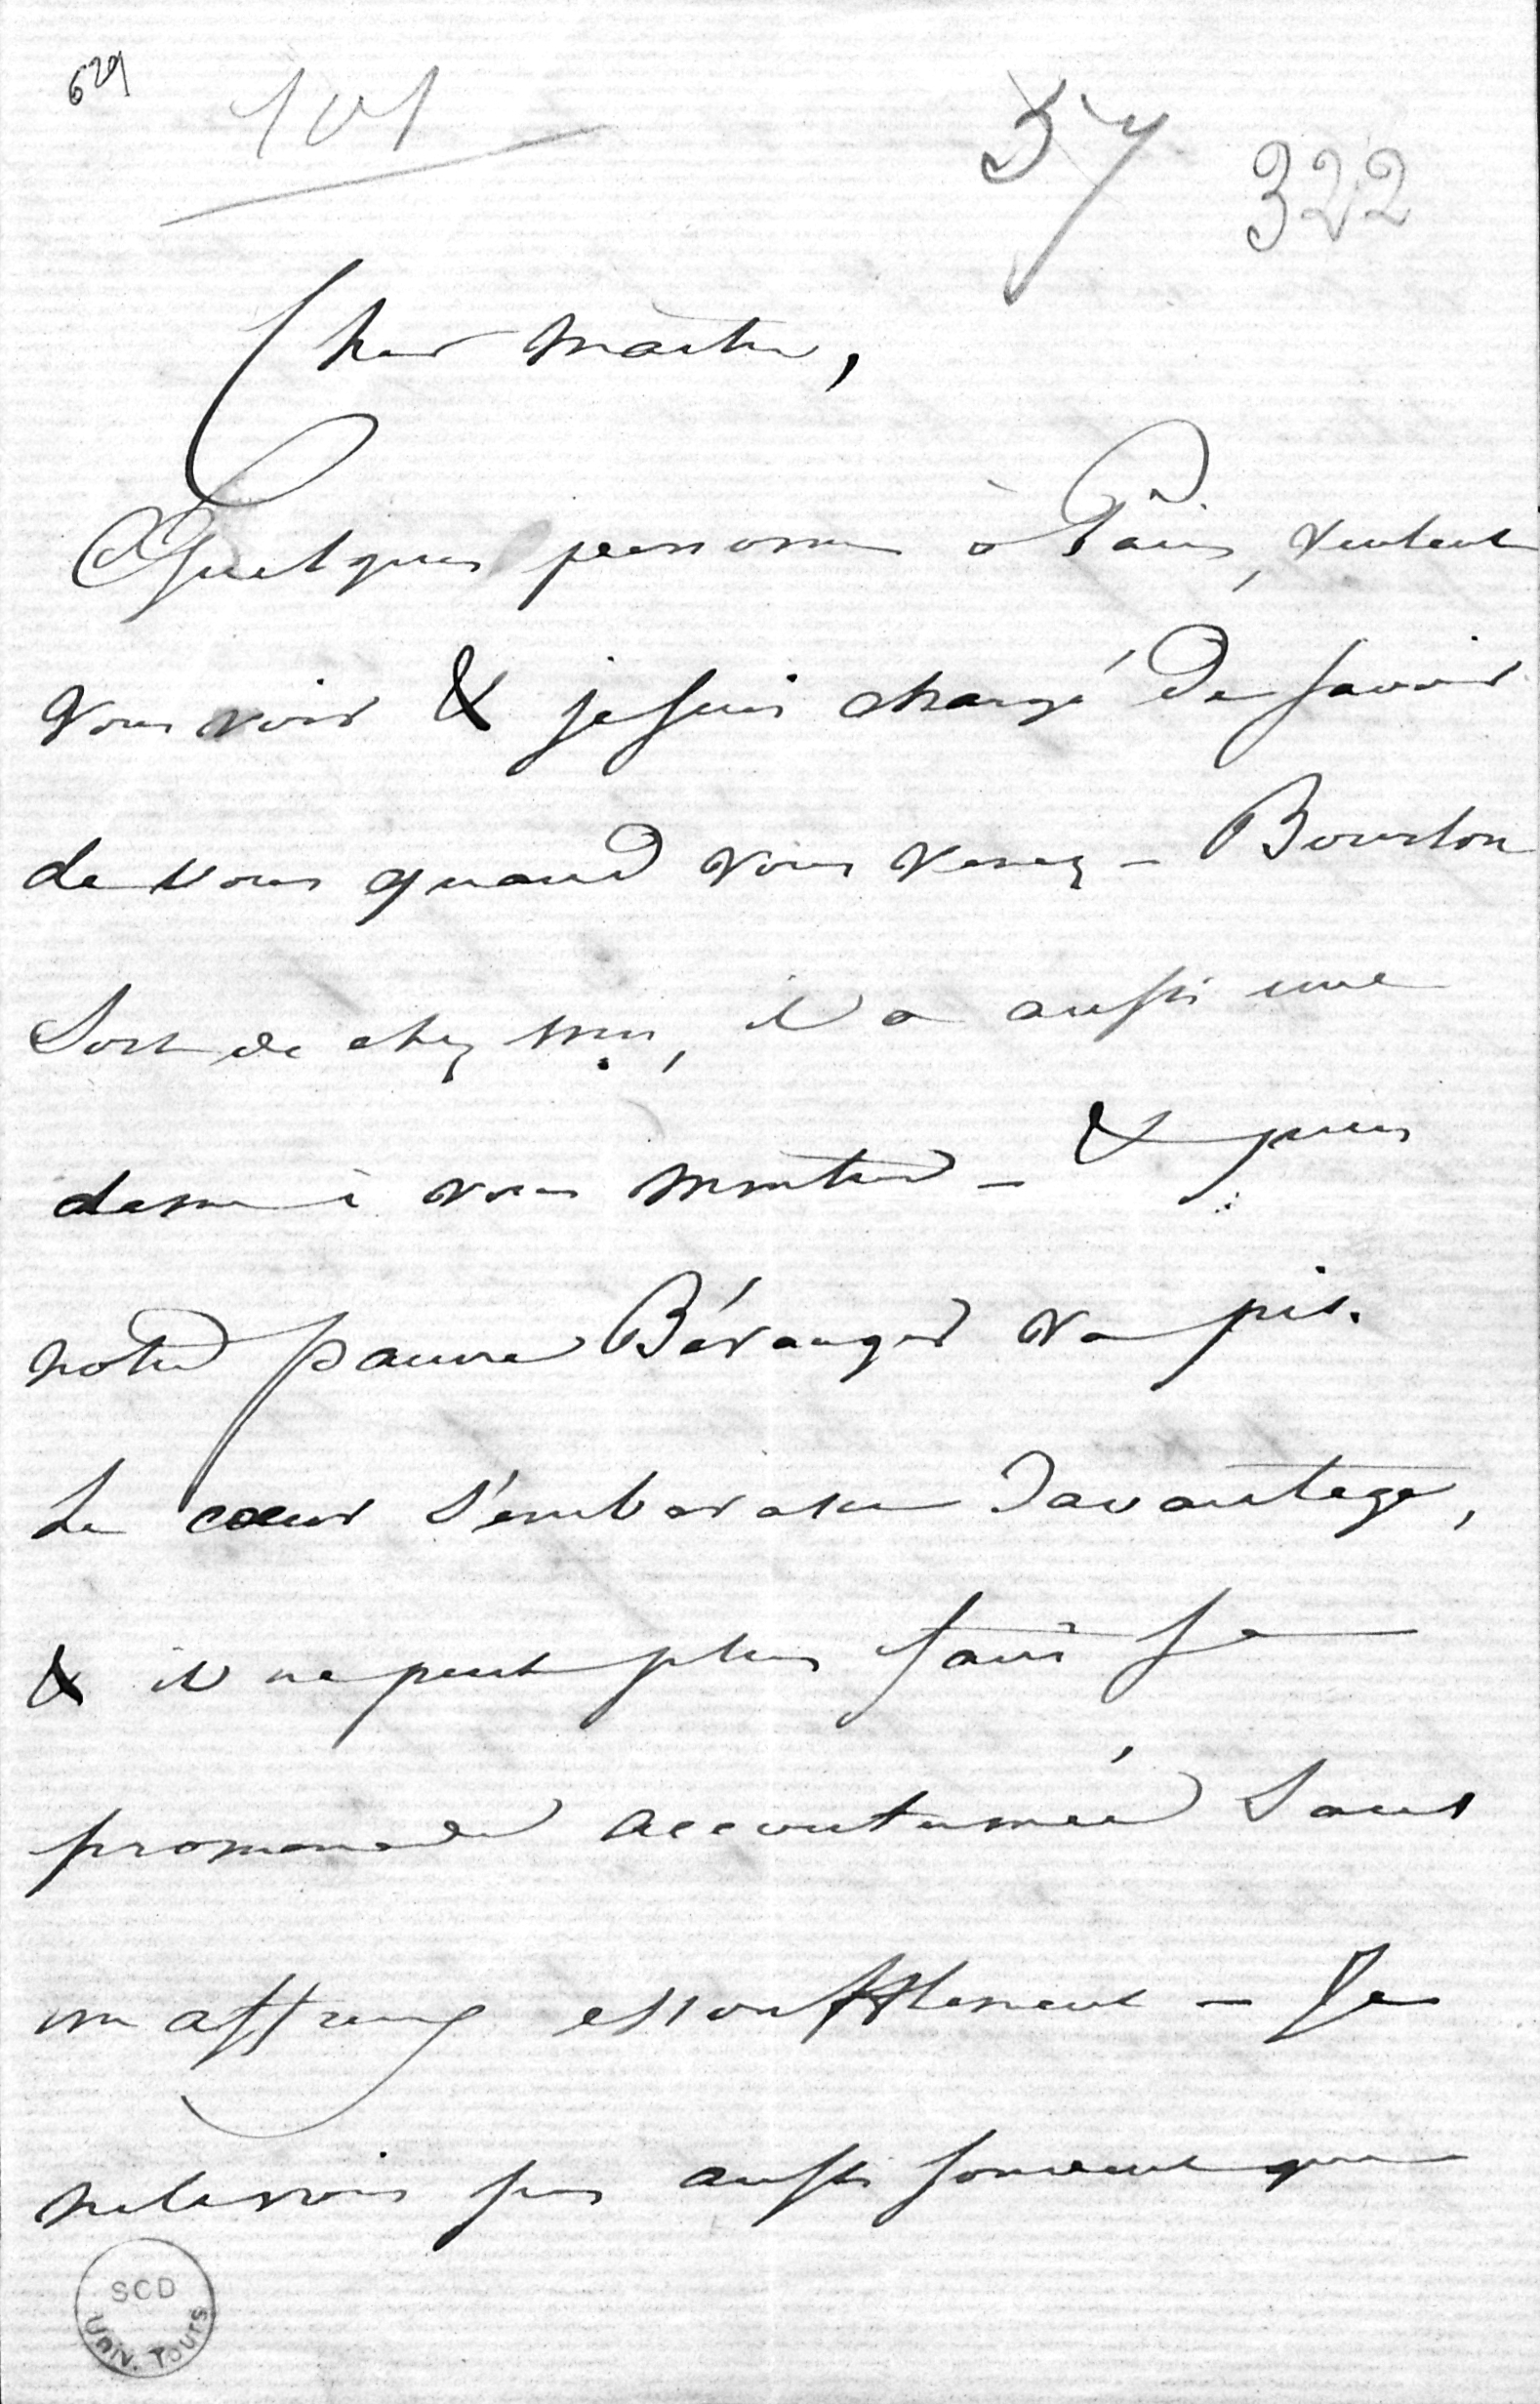 629
101
57
322
Cher maître,
Quelques personnes à Paris, veulent
vous voir & je suis chargé de savoir
de vous quand vous venez - Bourdon
sort de chez moi, il a aussi une
dame à vous montrer - & puis
notre pauvre Béranger va pis.
Le cœur s'embarasse davantage,
& il ne peut plus faire sa
promenade accoutumée sans
un affreux essoufflement - Je
ne le vois pas aussi souvent que
SCD
Univ. Tours